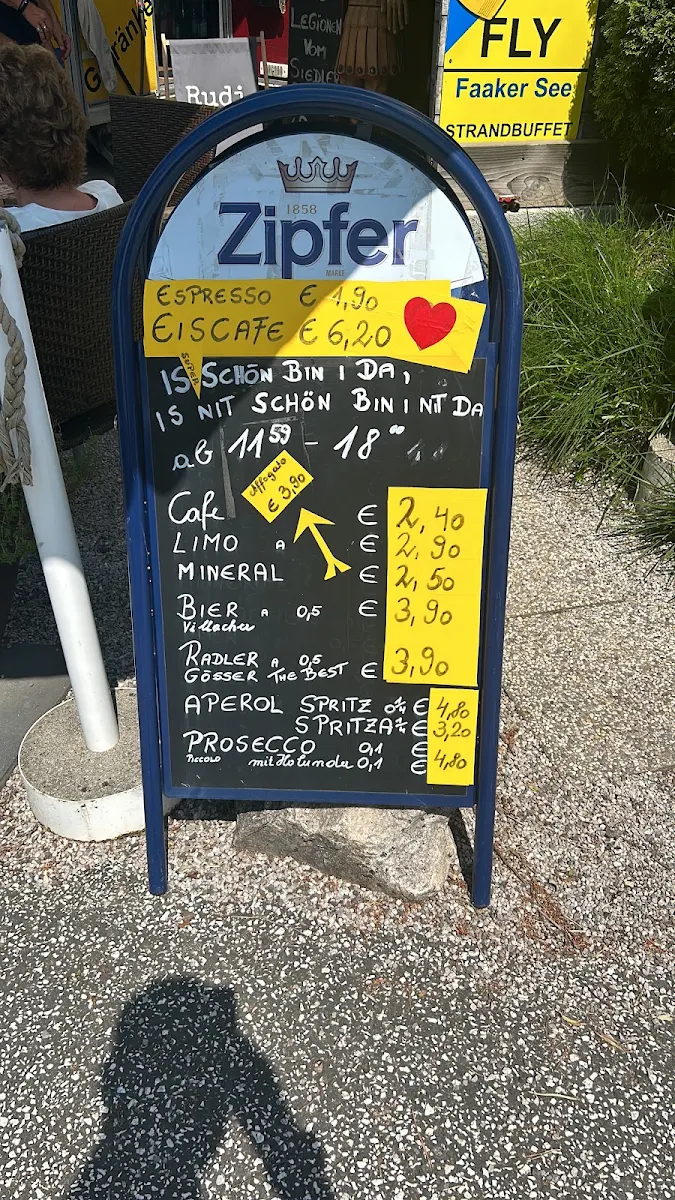 Getränke
LEGIONEN
VOM
SIEDLER
Rudi
FLY
Faaker See
STRANDBUFFET
1858
Zipfer
MARKE
ESPRESSO € 1,90
EISCAFE € 6,20
SUPER
IS SCHÖN BIN I DA,
IS NIT SCHÖN BIN I NT DA
ab 11 59 - 18 00
Affogato
€ 3,90
Cafe € 2,40
LIMO A € 2,90
MINERAL € 2,50
BIER A 0,5 € 3,90
Villacher
RADLER A 0,5
GÖSSER THE BEST € 3,90
APEROL SPRITZ 0/4 € 4,80
SPRITZA 1/4 € 3,20
PROSECCO 0,1 €
Piccolo mit Holunder 0,1 € 4,80